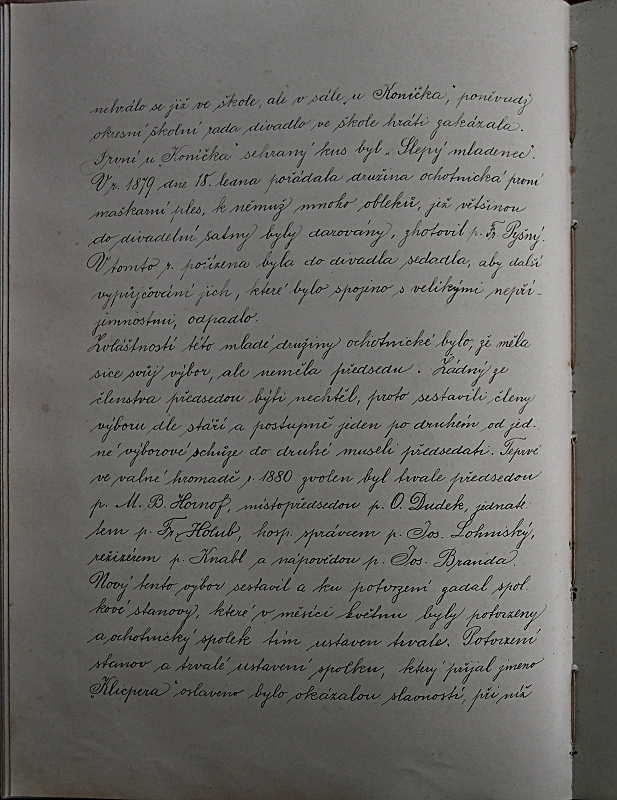 nehrálo se již ve škole, ale v sále „u Koníčka“, poněvadž
okresní školní rada divadlo ve škole hráti zakázala.
První u „Koníčka“ sehraný kus byl „Slepý mládenec“.
V r. 1879 dne 18. ledna pořádala družina ochotnická první
maškarní ples, k němuž mnoho obleků, jež většinou
do divadelní šatny byly darovány, zhotovil p. Fr. Pyšný.
V tomto r. pořízena byla do divadla sedadla, aby další
vypůjčování jich, které bylo spojeno s velikými nepří-
jemnostmi, odpadlo.
Zvláštností této mladé družiny ochotnické bylo, že měla
sice svůj výbor, ale neměla předsedu. Žádný ze
členstva předsedou býti nechtěl, proto sestavili členy
výboru dle stáří a postupně jeden po druhém od jed-
né výborové schůze do druhé museli předsedati. Teprve
ve valné hromadě r. 1880 zvolen byl trvale předsedou
p. M. B. Hornof, místopředsedou p. O. Dudek, jednate
lem p. Fr. Holub, hosp. správcem p. Jos. Lohniský,
režizérem p. Knabl a nápovědou p. Jos. Branda.
Nový tento výbor sestavil a ku potvrzení zadal spol-
kové stanovy, které v měsíci květnu byly potvrzeny
a ochotnický spolek tím ustaven trvale. Potvrzení
stanov a trvalé ustavení spolku, který přijal jmeno
„Klicpera“ oslaveno bylo okázalou slavností, při níž